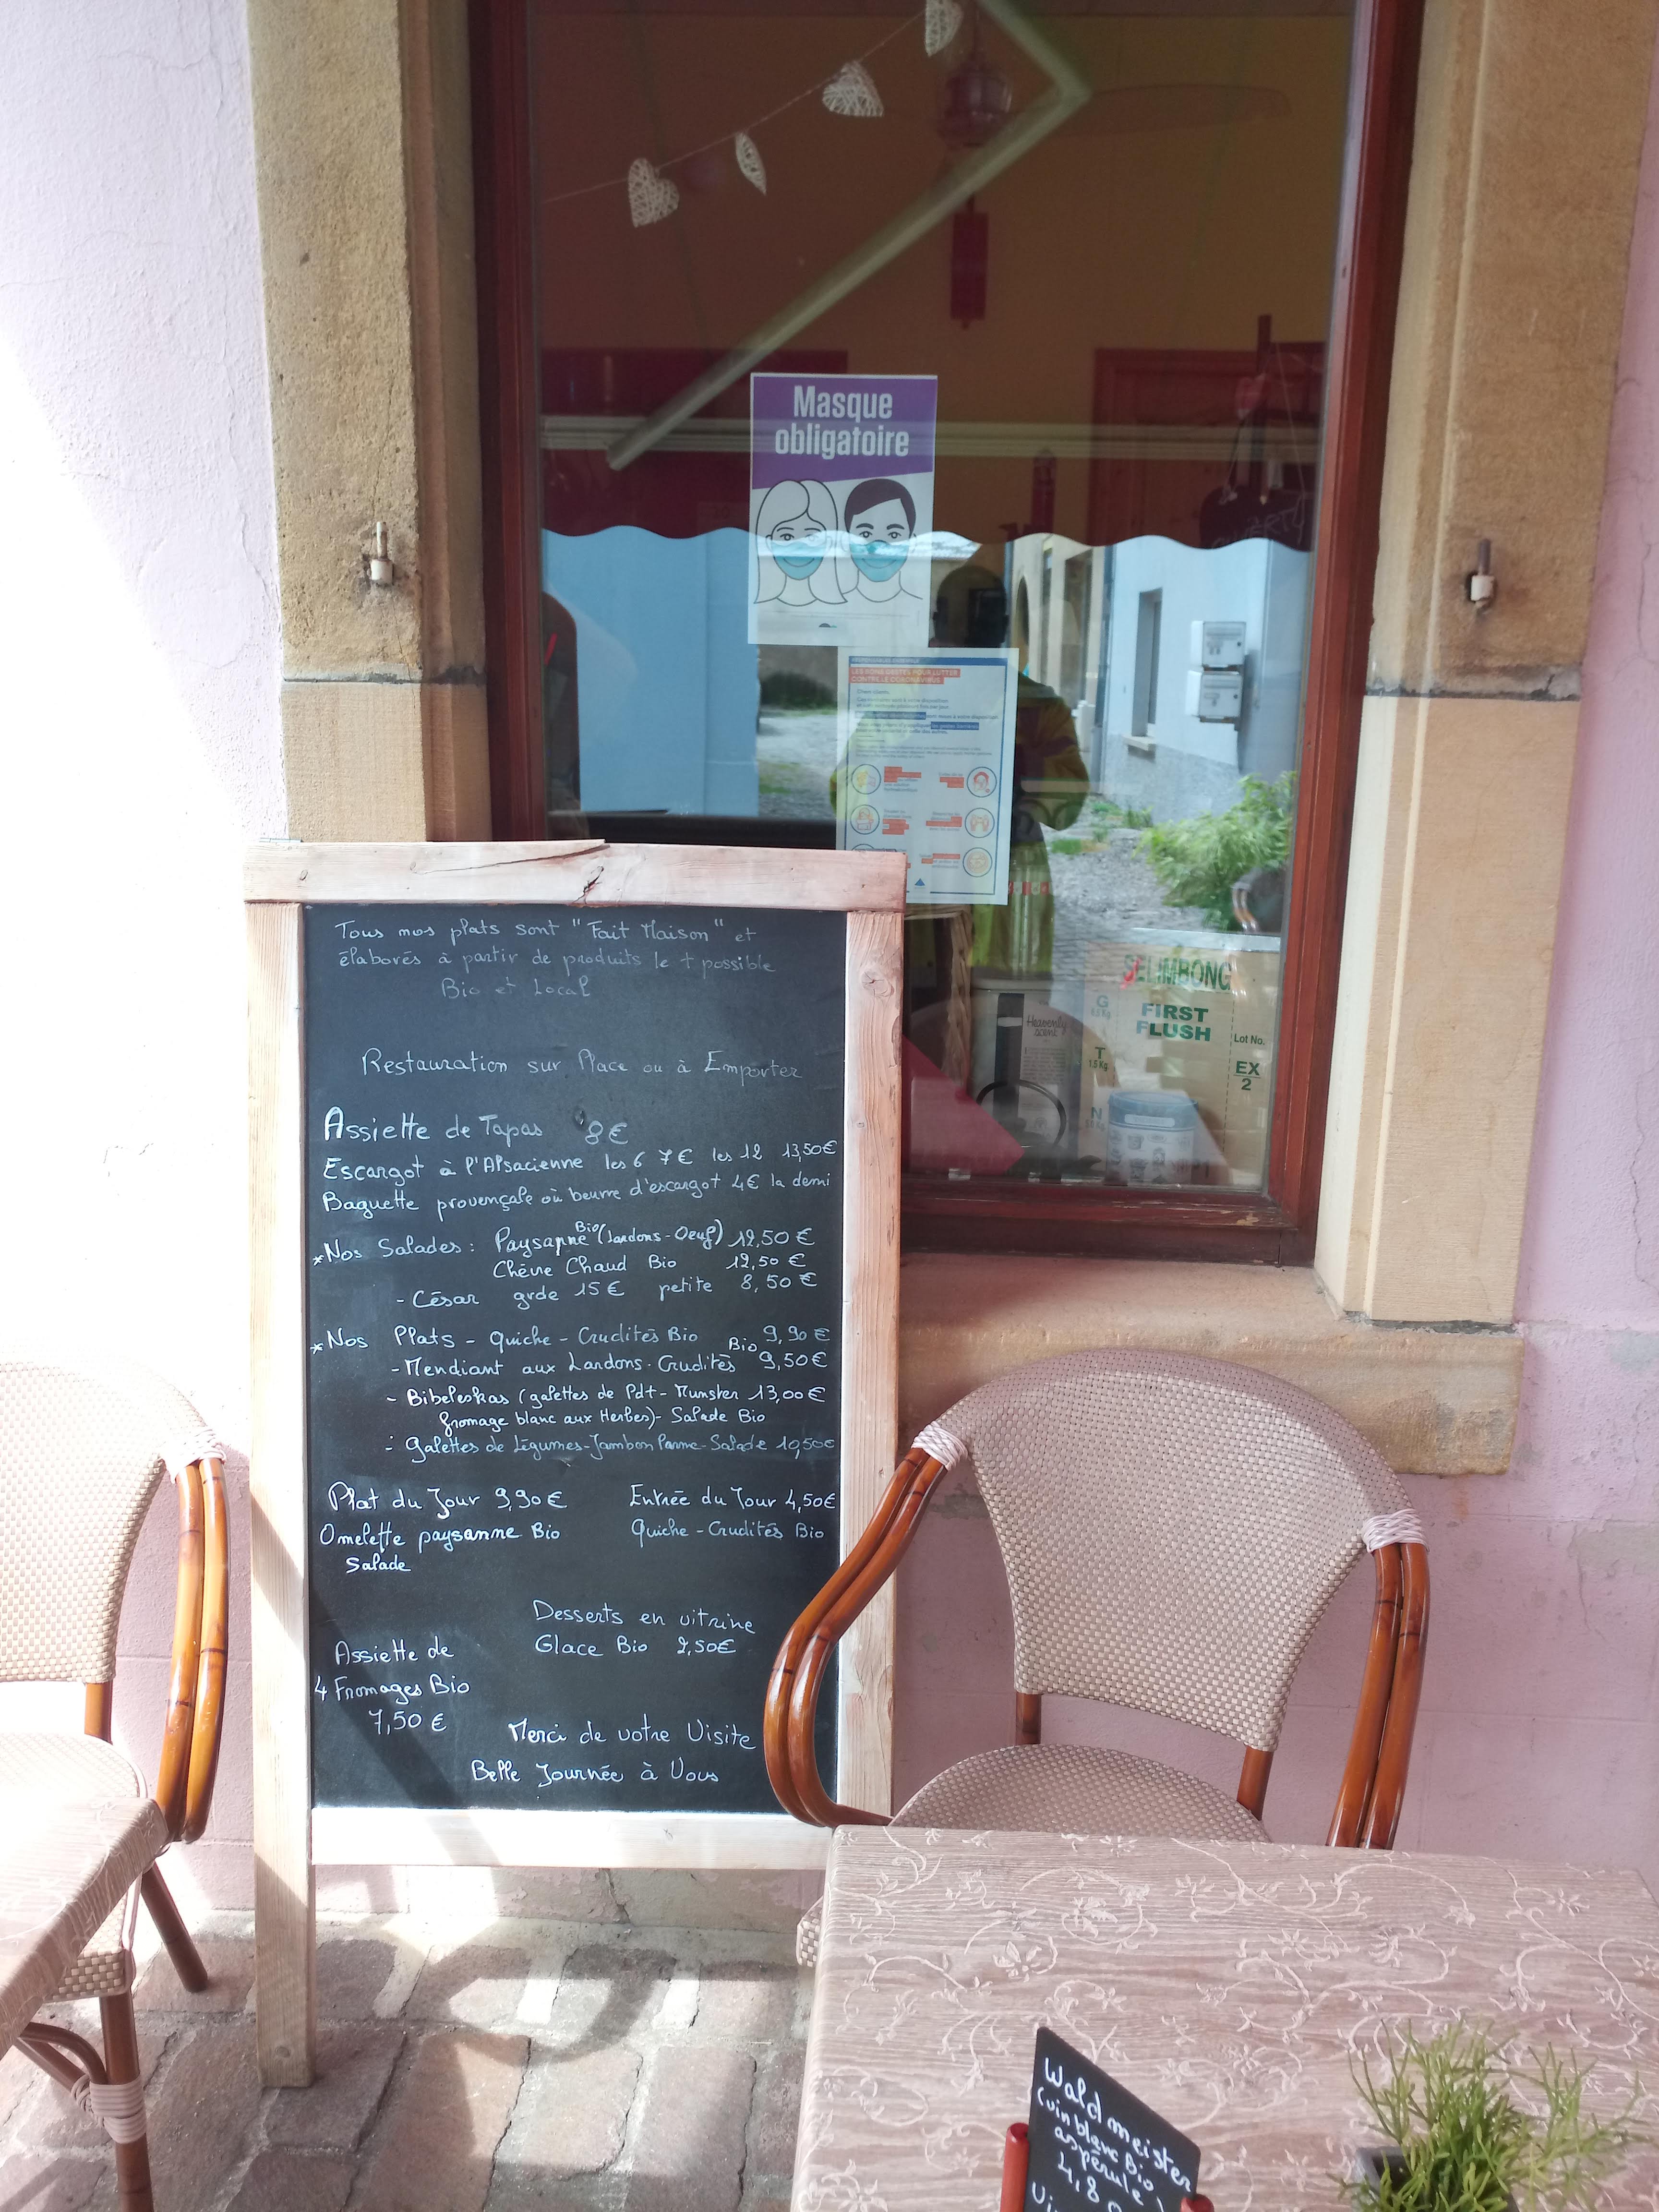 Masque
obligatoire
LES BONS GESTES POUR LUTTER
CONTRE LE CORONAVIRUS
SELIMBONG
FIRST
FLUSH
Lot No.
EX
2
G
T
1.5 Kg
N
Heavenly
scent
Tous nos plats sont "Fait Maison" et
élaborés à partir de produits le + possible
Bio et Local
Restauration sur Place ou à Emporter
Assiette de Tapas 8€
Escargot à l'Alsacienne les 6 7€ les 12 13,50€
Baguette provençale où beurre d'escargot 4€ la demi
*Nos Salades : Paysanne Bio (Lardons-Oeuf) 12,50 €
Chèvre Chaud Bio 12,50 €
- César grde 15€ petite 8,50 €
*Nos Plats - Quiche - Crudités Bio 9,90 €
- Mendiant aux Landons - Crudités Bio 9,50€
- Bibeleskas (galettes de Pdt - Munster 13,00€
fromage blanc aux Herbes) - Salade Bio
- Galettes de Légumes - Jambon Parme - Salade 10,50€
Plat du Jour 9,90€ Entrée du Jour 4,50€
Omelette paysanne Bio Quiche - Crudités Bio
Salade
Desserts en vitrine
Glace Bio 2,50€
Assiette de
4 Fromages Bio
7,50 €
Merci de votre Visite
Belle Journée à Vous
Waldmeister
(vin blanc Bio
aspérule)
4,80